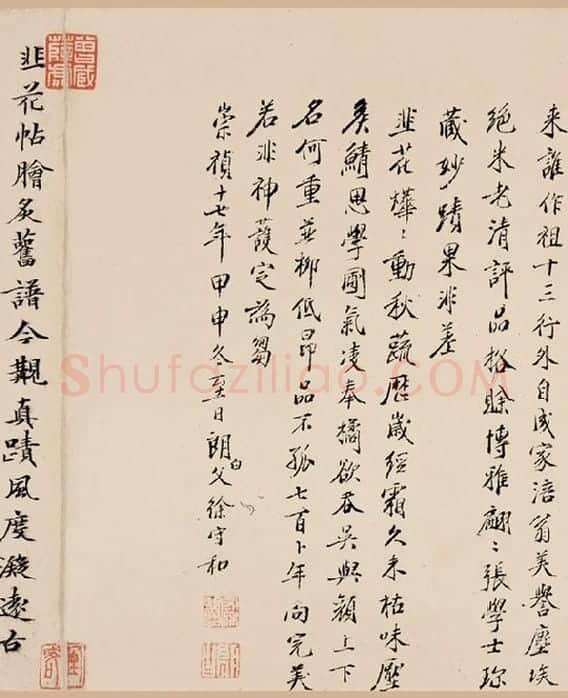 来誰作祖十三行外自成家涪翁美譽塵埃
絕米老清評品格賒博雅翩〻張學士珍
藏妙蹟果非差
韭花燁〻動秋蔬歷歲經霜久未枯味壓
矦鯖思學圃氣凌奉橘欲吞吳與顏上下
名何重並柳低昂品不孤七百卜年完美
若非神護定芻
崇禎十七年甲申冬至日朗父徐守和
白
韭花帖膾炙舊譜今觀真蹟風度凝遠古
ShufaziliaO.COM